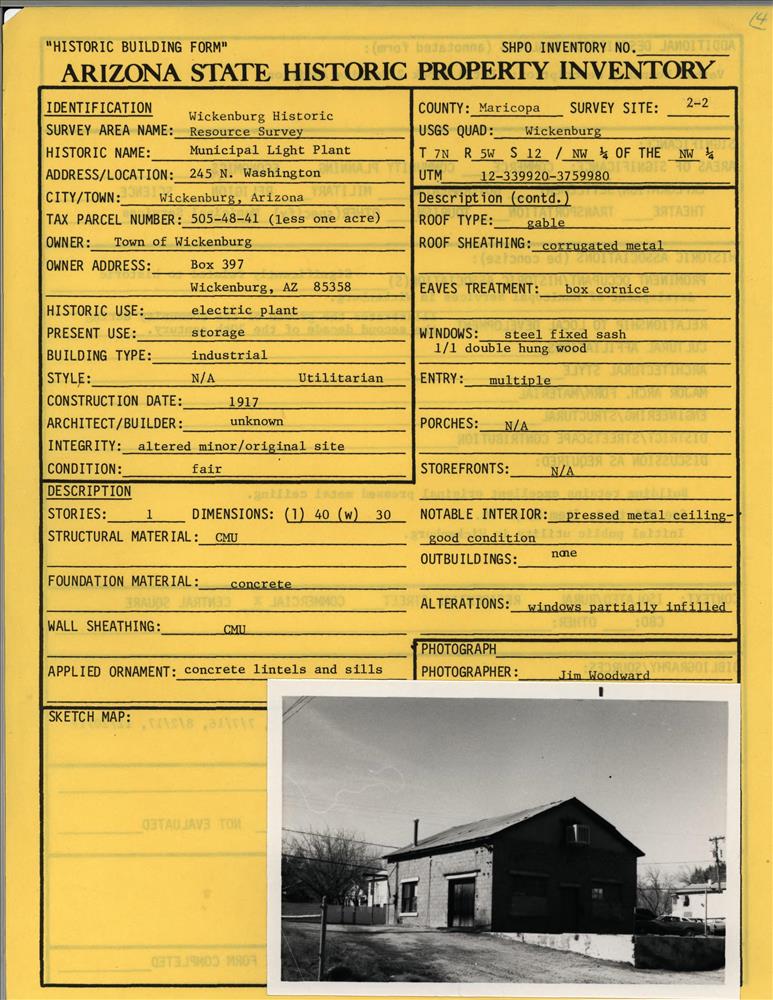 14
"HISTORIC BUILDING FORM"
SHPO INVENTORY NO.
ARIZONA STATE HISTORIC PROPERTY INVENTORY
IDENTIFICATION
SURVEY AREA NAME: Wickenburg Historic
Resource Survey
HISTORIC NAME: Municipal Light Plant
ADDRESS/LOCATION: 245 N. Washington
CITY/TOWN: Wickenburg, Arizona
TAX PARCEL NUMBER: 505-48-41 (less one acre)
OWNER: Town of Wickenburg
OWNER ADDRESS: Box 397
Wickenburg, AZ 85358
HISTORIC USE: electric plant
PRESENT USE: storage
BUILDING TYPE: industrial
STYLE: N/A Utilitarian
CONSTRUCTION DATE: 1917
ARCHITECT/BUILDER: unknown
INTEGRITY: altered minor/original site
CONDITION: fair
COUNTY: Maricopa SURVEY SITE: 2-2
USGS QUAD: Wickenburg
T 7N R 5W S 12 / NW ¼ OF THE NW ¼
UTM 12-339920-3759980
Description (contd.)
ROOF TYPE: gable
ROOF SHEATHING: corrugated metal
EAVES TREATMENT: box cornice
WINDOWS: steel fixed sash
1/1 double hung wood
ENTRY: multiple
PORCHES: N/A
STOREFRONTS: N/A
DESCRIPTION
STORIES: 1 DIMENSIONS: (l) 40 (w) 30
STRUCTURAL MATERIAL: CMU
FOUNDATION MATERIAL: concrete
WALL SHEATHING: CMU
APPLIED ORNAMENT: concrete lintels and sills
NOTABLE INTERIOR: pressed metal ceiling-
good condition
OUTBUILDINGS: none
ALTERATIONS: windows partially infilled
PHOTOGRAPH
PHOTOGRAPHER: Jim Woodward
SKETCH MAP: